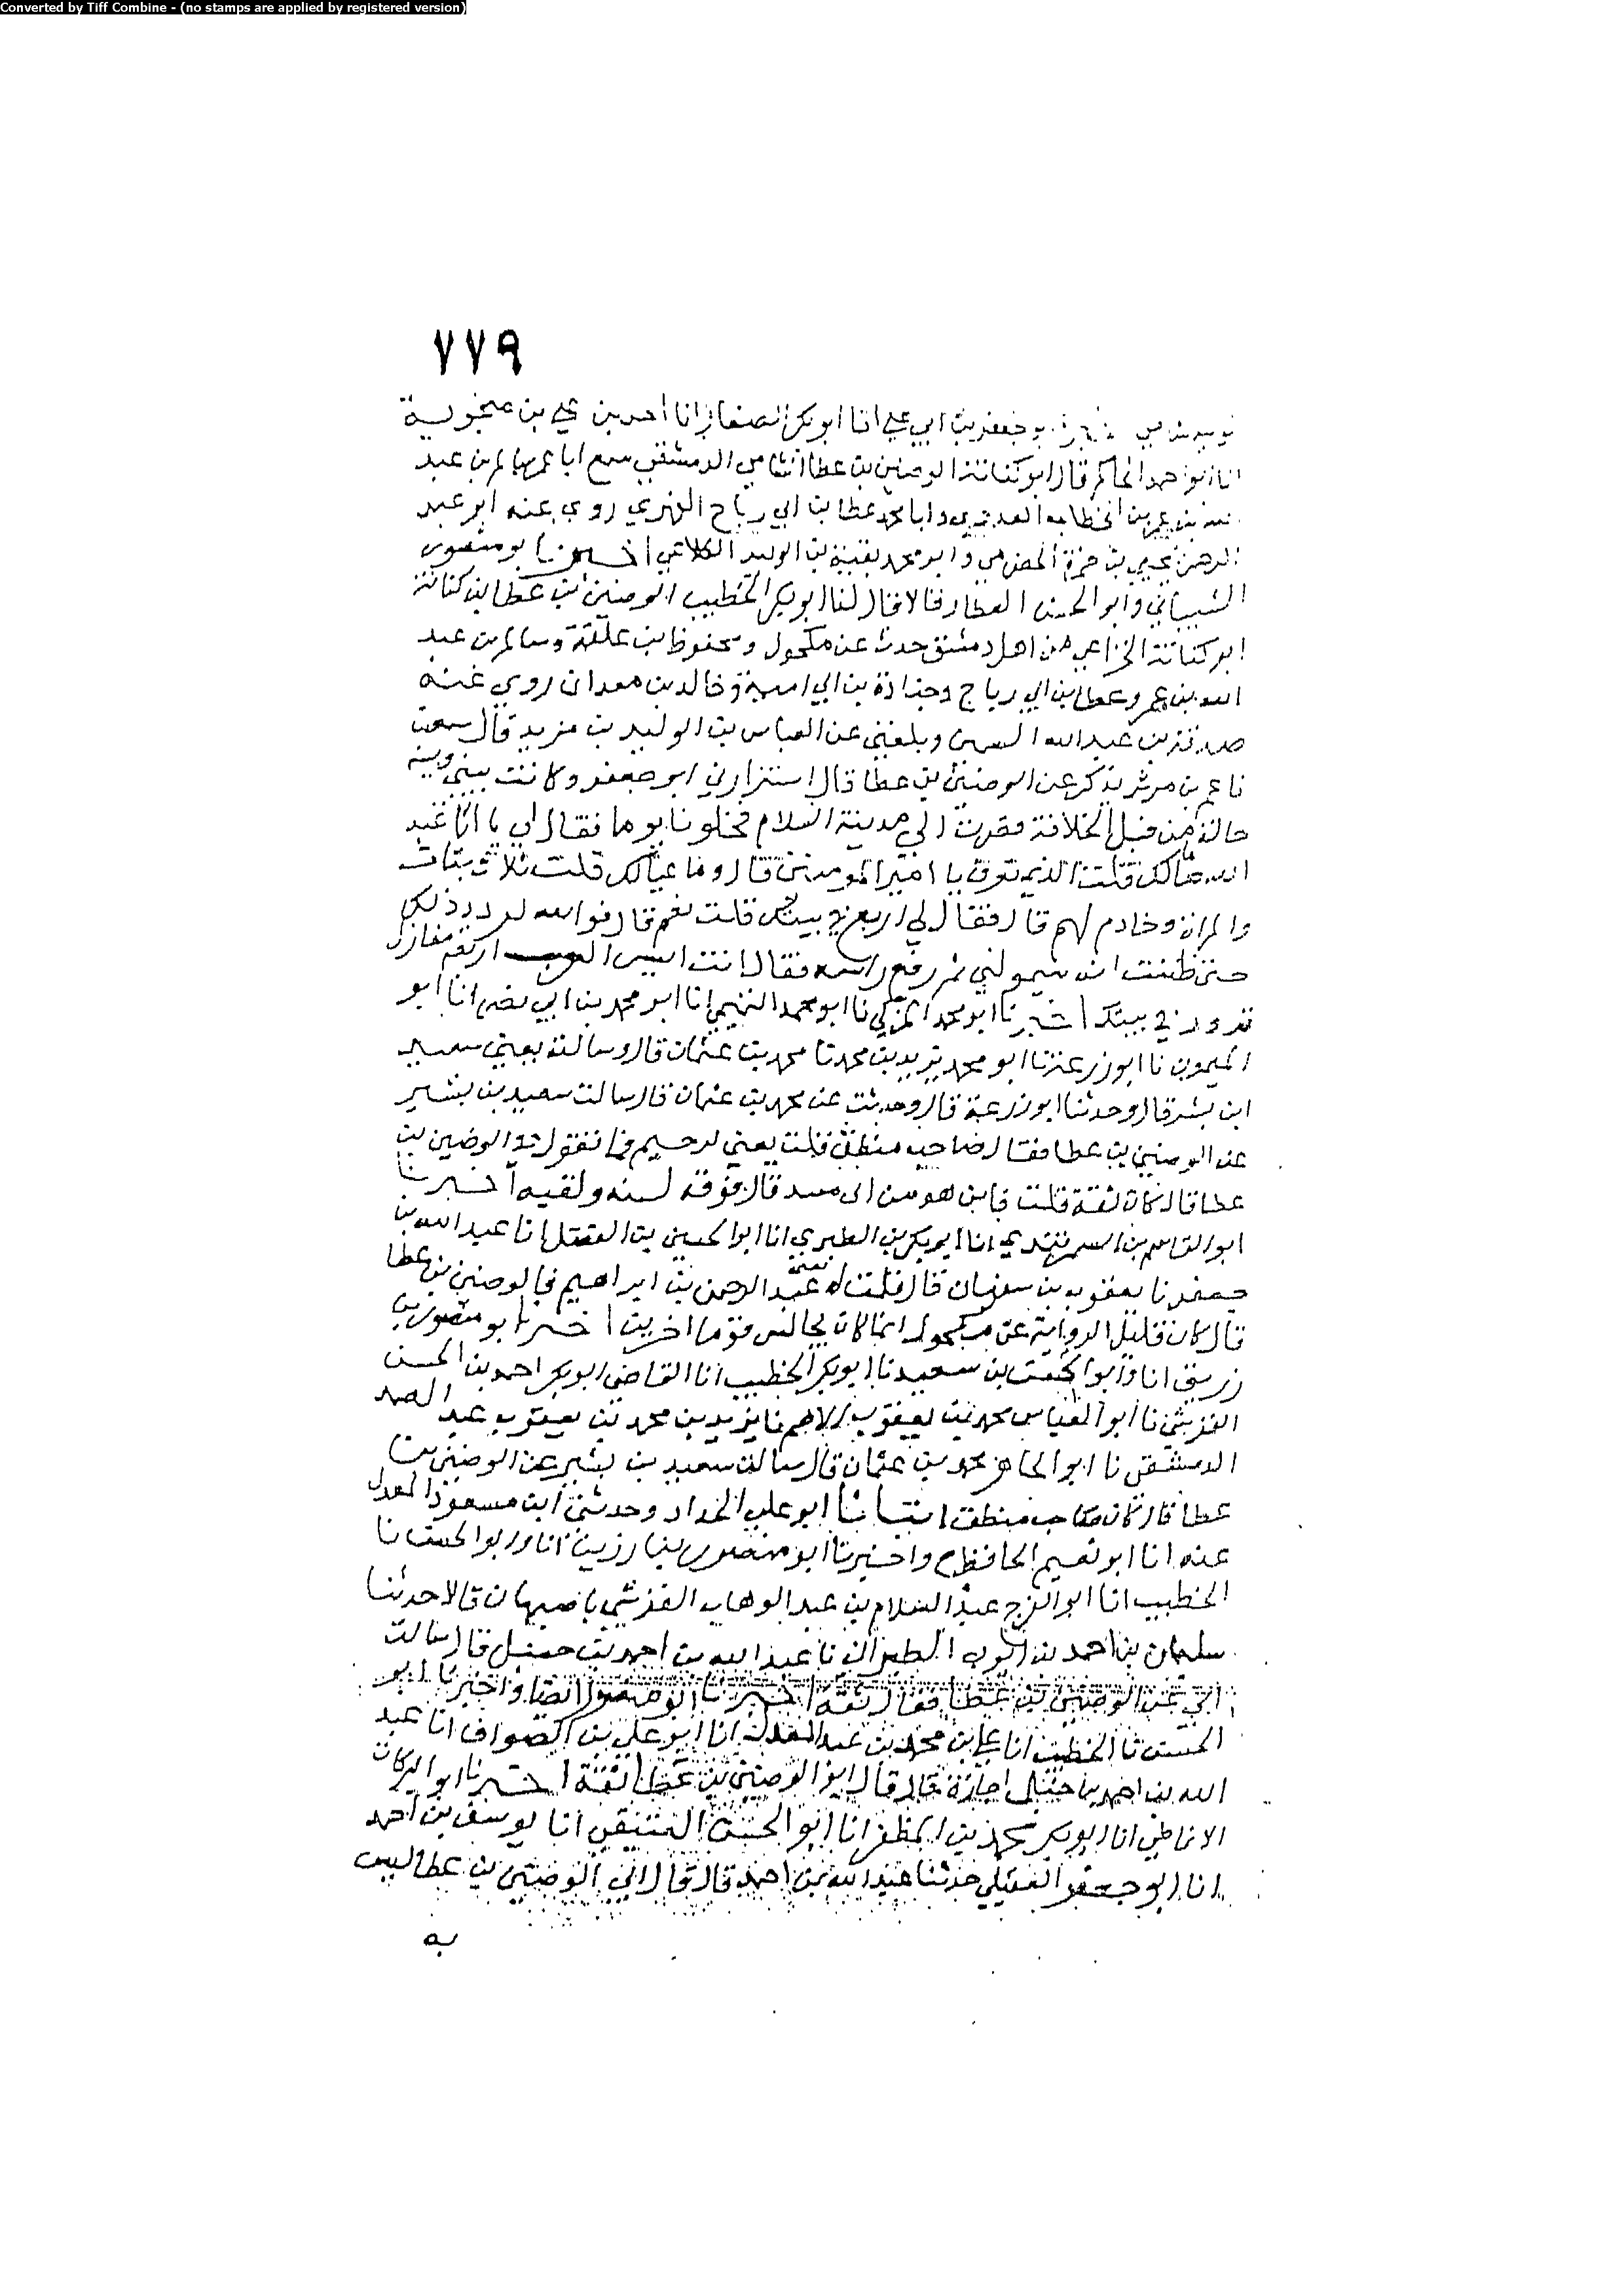 Converted by Tiff Combine - (no stamps are applied by registered version)
٧٧٩
جعفر بن ابي علي انا ابو بكر الصفار انا احمد بن علي بن منجويه
انا ابو احمد الحاكم قال ابو كنانة الوضين بن عطا الشامي الدمشقي سمع ابا عمر سالم بن عبد
بن عمر بن الخطاب العدوي وابا محمد عطا بن ابي رباح الفهري روى عنه ابو عبد
الرحمن يحيى بن حمزة الحضرمي وابو محمد بقية بن الوليد الكلاعي اخبرنا ابو منصور
الشيباني وابو الحسن العطار قالا قال لنا ابو بكر الخطيب الوضين بن عطا بن كنانة
ابو كنانة الخزاعي من اهل دمشق حدث عن مكحول ومحفوظ بن علقمة وسالم بن عبد
الله بن عمر وعطا بن ابي رباح وجنادة بن ابي امية وخالد بن معدان روي عنه
صدقة بن عبد الله السمين وبلغني عن العباس بن الوليد بن مزيد قال سمعت
يذكر عن الوضين بن عطا قال استزارني ابو جعفر وكانت بيني وبينه
حالة من قبل الخلافة فقدمت الي مدينة السلام فخلونا يوما فقال لي يا ابا عبد
الله مالك قلت الذي تعرف يا امير المومنين قال وما عيالك قلت ثلاث بنات
والمراة وخادم لهم قال فقال لي اربع في بيتك قلت نعم قال فوالله لردد ذلك
حتى ظننت انه سيمولني ثم رفع راسه فقال انت ايسر العرب اربعة مغازل
تدور في بيتك اخبرنا ابو محمد المزكي نا ابو محمد التميمي انا ابو محمد بن ابي نصر انا ابو
الميمون نا ابو زرعة نا ابو محمد يزيد بن محمد نا محمد بن عثمان قال وسالته يعني سعيد
ابن بشر قال وحدثنا ابو زرعة قال وحدثت عن محمد بن عثمان قال سالت سعيد بن بشير
عن الوضين بن عطا فقال صاحب منطق قلت يعني لدحيم فما تقول في الوضين بن
عطا قال كان ثقة قلت فاين هو من ابي معيد قال فوقه لسنه ولقيه اخبرنا
ابو القاسم بن السمرقندي انا ابو بكر بن الطبري انا ابو الحسين بن الفضل انا عبد الله بن
جعفر نا يعقوب بن سفيان قال قلت له يعني عبد الرحمن بن ابراهيم فالوضين بن عطا
قال كان قليل الرواية عن مكحول انما كان يجالس قوما اخرين اخبرنا ابو منصور بن
زريق انا وابو الحسن بن سعيد نا ابو بكر الخطيب انا القاضي ابو بكر احمد بن الحسن
القرشي نا ابو العباس محمد بن يعقوب الاصم نا يزيد بن محمد بن يعقوب عبد الصمد
الدمشقي نا ابو الجماهر محمد بن عثمان قال سالت سعيد بن بشير عن الوضين بن
عطا قال كان صاحب منطق انبانا ابو علي الحداد وحدثني ابن مسعود المعدل
عنه انا ابو نعيم الحافظ ح واخبرنا ابو منصور بن زريق انا وابو الحسن نا
الخطيب انا ابو الفرج عبد السلام بن عبد الوهاب القرشي باصبهان قالا حدثنا
سليمان بن احمد بن ايوب الطبراني نا عبد الله بن احمد بن حنبل قال سالت
ابي عن الوضين بن عطا فقال ثقة اخبرنا ابو منصور ايضا واخبرنا ابو
الحسن نا الخطيب انا علي بن محمد بن عبد المعدل انا ابو علي بن الصواف انا عبد
الله بن احمد بن حنبل اجازة قال قال ابي الوضين بن عطا ثقة اخبرنا ابو البركات
الانماطي انا ابو بكر محمد بن المظفر انا ابو الحسن العتيقي انا يوسف بن احمد
انا ابو جعفر العقيلي حدثنا عبد الله بن احمد قال قال ابي الوضين بن عطا ليس
به